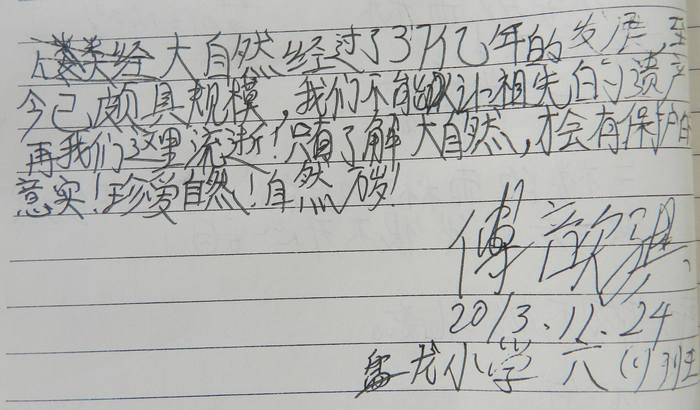 人类经大自然经过了37亿年的发展，至
今已颇具规模，我们不能让祖先的遗产
再我们这里流逝！只有了解大自然，才会有保护的
意实！珍爱自然！自然万岁！
傅歆
2013.11.24
龙小学六(1)班